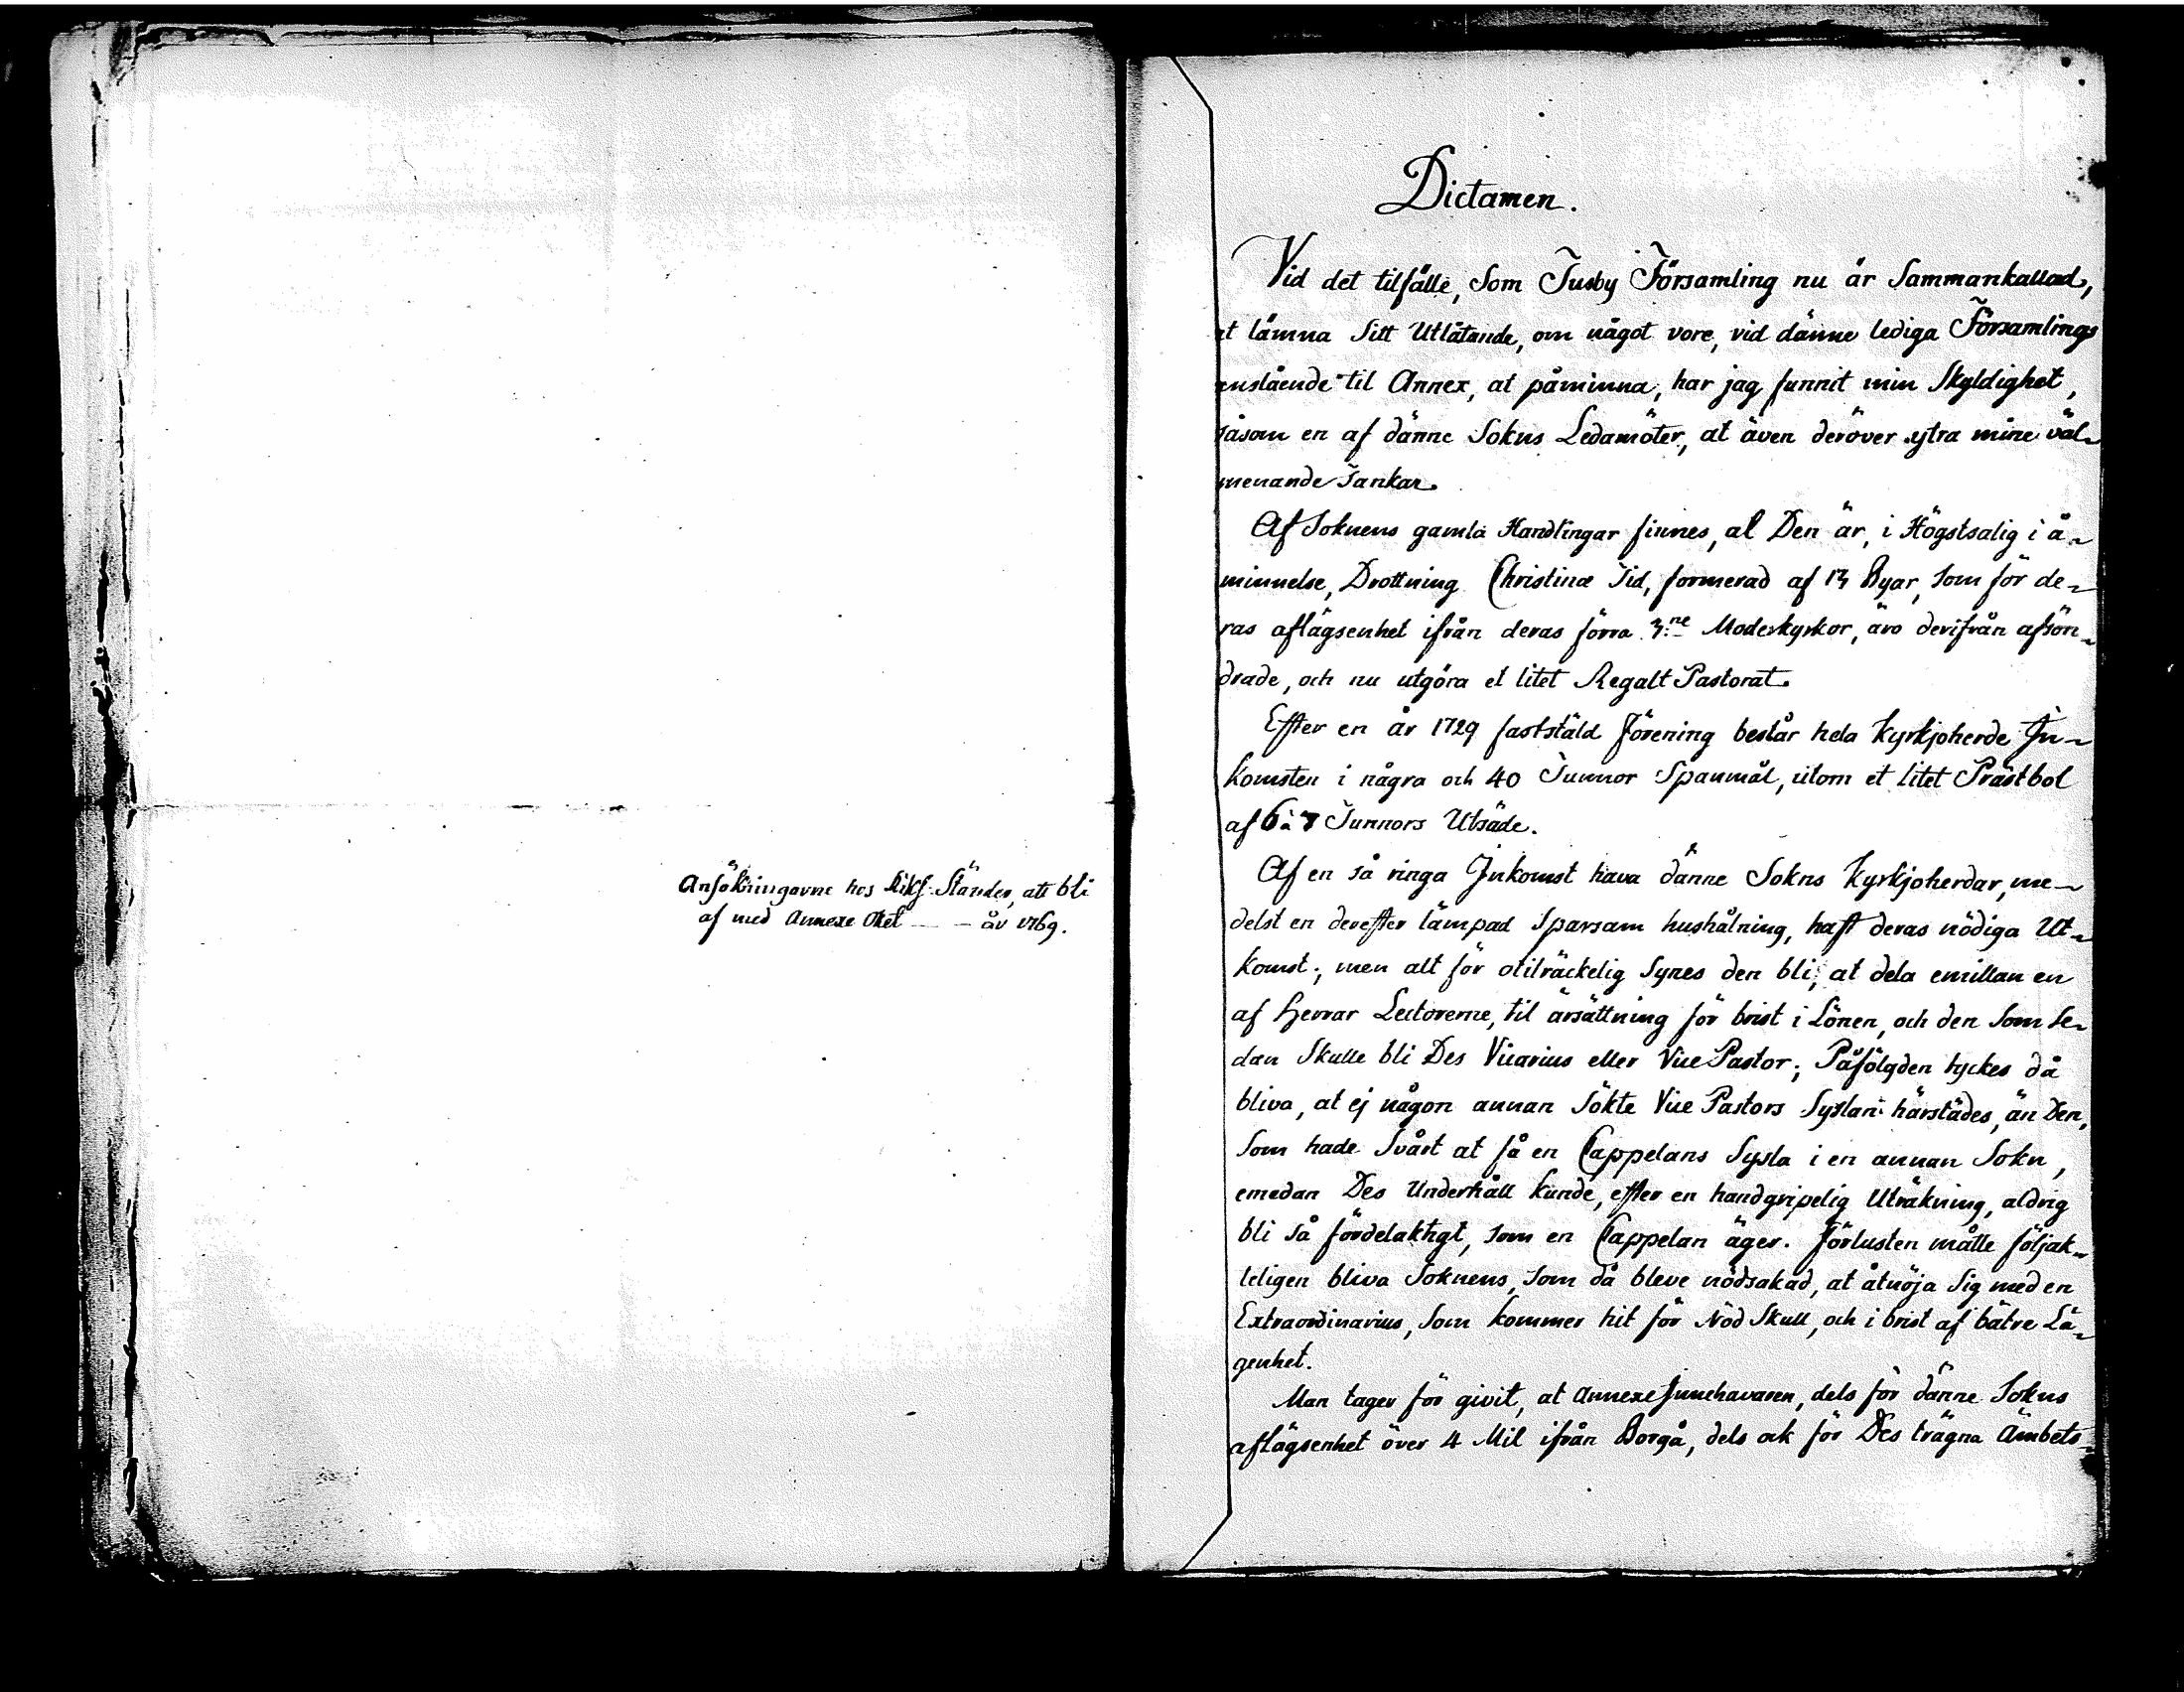 Ansökningarne hos Riks: Ständer, att bli
af med Annexe Oket — — år 1769.
Dictamen.
Vid det tilfälle, Som Tusby Församling nu är Sammankallad,
at lämna Sitt Utlåtande, om något vore, vid dänne lediga Församlings
anslående til Annex, at påminna, har jag funnit min Skyldighet,
såsom en af dänne Sokns Ledamöter, at även deröver ytra mine väl-
menande Tankar.
Af Soknens gamla Handlingar finnes, at Den är, i Högstsalig i å-
minnelse, Drottning Christinæ Tid, formerad af 13 Byar, Som för de-
ras aflägsenhet ifrån deras förra 3:ne Moderkyrkor, äro derifrån afsön-
drade, och nu utgöra et litet Regalt Pastorat.
Efter en år 1729 fastställd Förening består hela Kyrkjoherde In-
komsten i några och 40 Tunnor Spanmål, utom et litet Prästbol
af 6 à 7 Tunnors Utsäde.
Af en så ringa Inkomst hava dänne Sokns Kyrkjoherdar, me-
delst en derefter lämpad Sparsam hushålning, haft deras nödiga Ut-
komst; men alt för otilräckelig Synes den bli, at dela emillan en
af Herrar Lectorerne, til ärsättning för brist i Lönen, och den Som Se-
dan Skulle bli Des Vicarius eller Vice Pastor; Påfölgden tyckes då
bliva, at ej någon annan Sökte Vice Pastors Syslan härstädes, än Den,
Som hade Svårt at få en Cappelans Sysla i en annan Sokn,
emedan Des Underhåll kunde, efter en handgripelig Uträkning, aldrig
bli så fördelaktigt, som en Cappelan äger. Förlusten måtte följak-
teligen bliva Soknens, Som då bleve nödsakad, at åtnöja Sig med en
Extraordinarius, Som kommer hit för Nöd Skull, och i brist af bätre Lä-
genhet.
Man tager för givit, at Annexe Innehavaren, dels för dänne Sokns
aflägsenhet över 4 Mil ifrån Borgå, dels ock för Des trägna Ämbets-